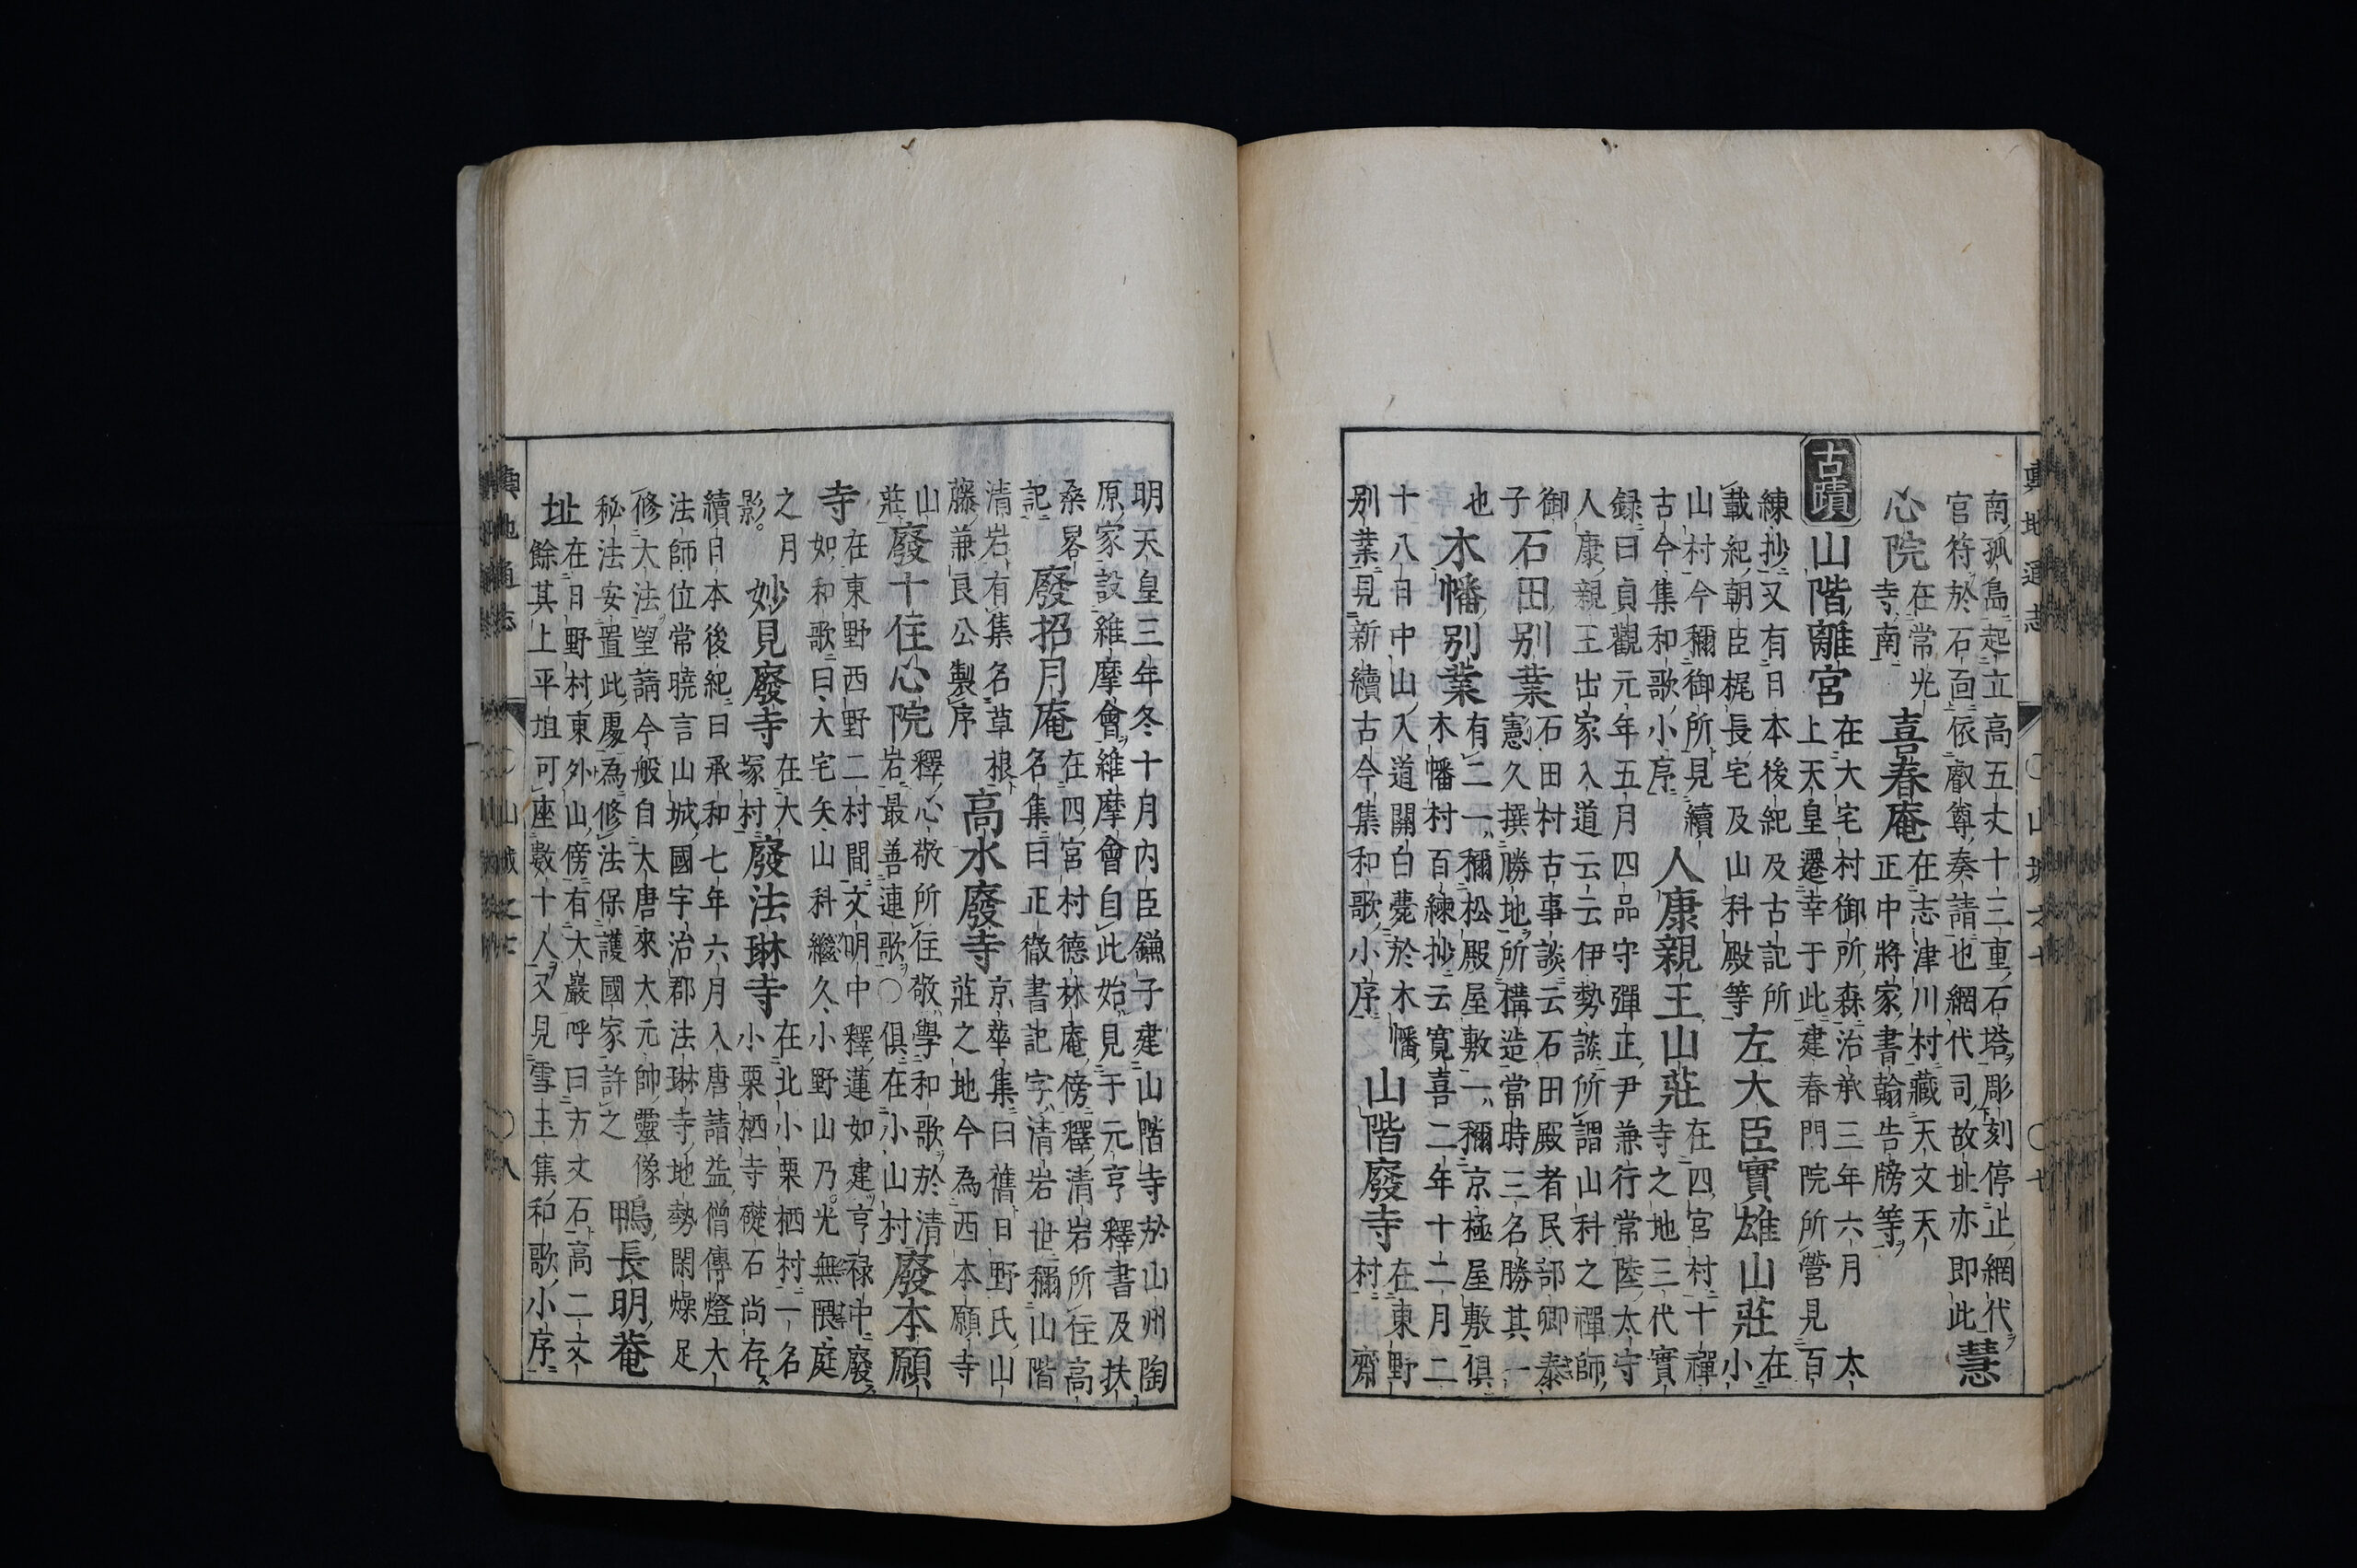 輿地通志 〇山城之七 〇七
南孤島起立高五丈十三重石塔彫刻停止網代
宮符於石面依叡尊奏請也網代司故址亦即此 慧
心院 在常光
寺南 喜春庵 在志津川村藏天文天
正中將家書翰告牓等
古蹟 山階離宮 在大宅村御所森治承三年六月太
上天皇遷幸于此建春門院所營見百
練抄又有日本後紀及古記所
載紀朝臣梶長宅及山科殿等 左大臣實雄山莊 在
小
山村今稱御所見續
古今集和歌小序 人康親王山莊 在四宮村十禪
寺之地三代實
録曰貞觀元年五月四品守彈正尹兼行常陸太守
人康親王出家入道云云伊勢談所謂山科之禪師
御
子 石田別業 石田村古事談云石田殿者民部卿泰
憲久撰勝地所構造當時三名勝其一
也 木幡別業 有二一稱松殿屋敷一稱京極屋敷俱
木幡村百練抄云寬喜二年十二月二
十八日中山入道關白薨於木幡
別業見新續古今集和歌小序 山階廢寺 在東野
村齊
明天皇三年冬十月内臣鎌子建山階寺於山州陶
原家設維摩會維摩會自此始見于元亨釋書及扶
桑畧
記 廢招月庵 在四宮村德林庵傍釋清岩所住高
名集曰正徹書記字清岩世稱山階
清岩有集名草根
藤兼良公製序 高水廢寺 京華集曰舊日野氏山
莊之地今為西本願寺
山
莊 廢十住心院 釋心敬所住敬學和歌於清
岩最善連歌〇俱在小山村 廢本願
寺 在東野西野二村間文明中釋蓮如建享禄中廢
如和歌曰大宅矢山科繼久小野山乃光無隈庭
之月
影。 妙見廢寺 在大
塚村 廢法琳寺 在北小栗栖村一名
小栗栖寺礎石尚存
續日本後紀曰承和七年六月入唐請益僧傳燈大
法師位常曉言山城國宇治郡法琳寺地勢閑燥足
修大法望請今般自大唐來大元帥靈像
秘法安置此處為修法保護國家許之 鴨長明菴
址 在日野村東外山傍有大巖呼曰方丈石高二丈
餘其上平坦可座數十人又見雪玉集和歌小序
輿地通志 〇山城之七 〇八